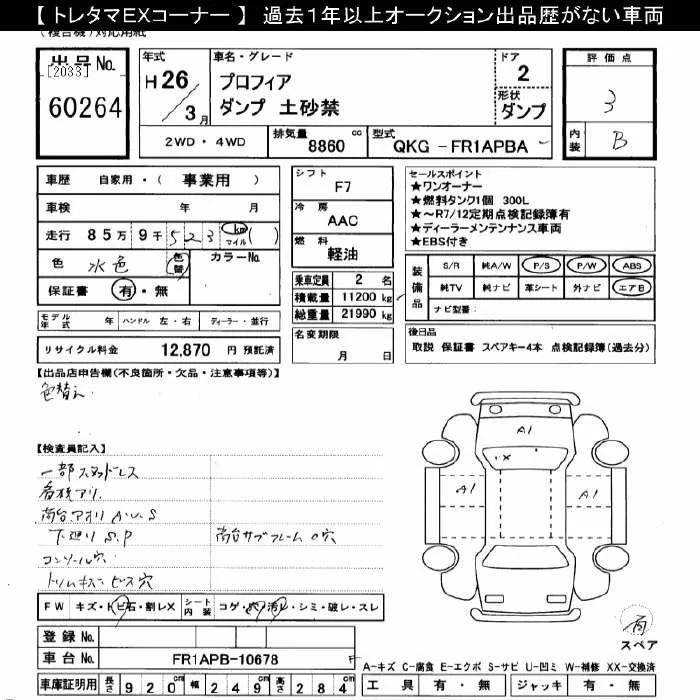 【トレタマEXコーナー】 過去1年以上オークション出品歴がない車両
(複合機)対応用紙
出品No.
[2033]
60264
年式
H26/3月
車名・グレード
プロフィア
ダンプ 土砂禁
ドア
2
形状
ダンプ
2WD・4WD
排気量 8860 cc
型式 QKG-FR1APBA
評価点
3
内装 B
車歴 自家用・(事業用)
車検 年 月
走行 85万9千523 km マイル ( )
色 水色 色替 カラーNo.
保証書 有・無
モデル年式 年 ハンドル 左・右 ディーラー・並行
リサイクル料金 12,870 円 預託済
シフト
F7
冷房
AAC
燃料
軽油
乗車定員 2 名
積載量 11200 kg
総重量 21990 kg
名変期限
月 日
セールスポイント
★ワンオーナー
★燃料タンク1個 300L
★~R7/12定期点検記録簿有
★ディーラーメンテナンス車両
★EBS付き
装備品
S/R 純A/W P/S P/W ABS
純TV 純ナビ 革シート 外ナビ エアB
ナビ型番:
後日品
取説 保証書 スペアキー4本 点検記録簿(過去分)
【出品店申告欄(不良箇所・欠品・注意事項等)】
色替え
【検査員記入】
一部スタッドレス
看板アリ
荷台アオリ A.U.S
下廻り S.P 荷台サブフレーム穴
コンソール穴
トリムキズ ビス穴
A1
X
A1
A1
FW キズ・トビ石・割レX シート内装 コゲ・穴・汚レ・シミ・破レ・スレ
登録No.
車台No. FR1APB-10678 F
車庫証明用 長さ 920 cm 幅 249 cm 高さ 284 cm
スペア
A-キズ C-腐食 E-エクボ S-サビ U-凹ミ W-補修 XX-交換済
工具 有・無 ジャッキ 有・無